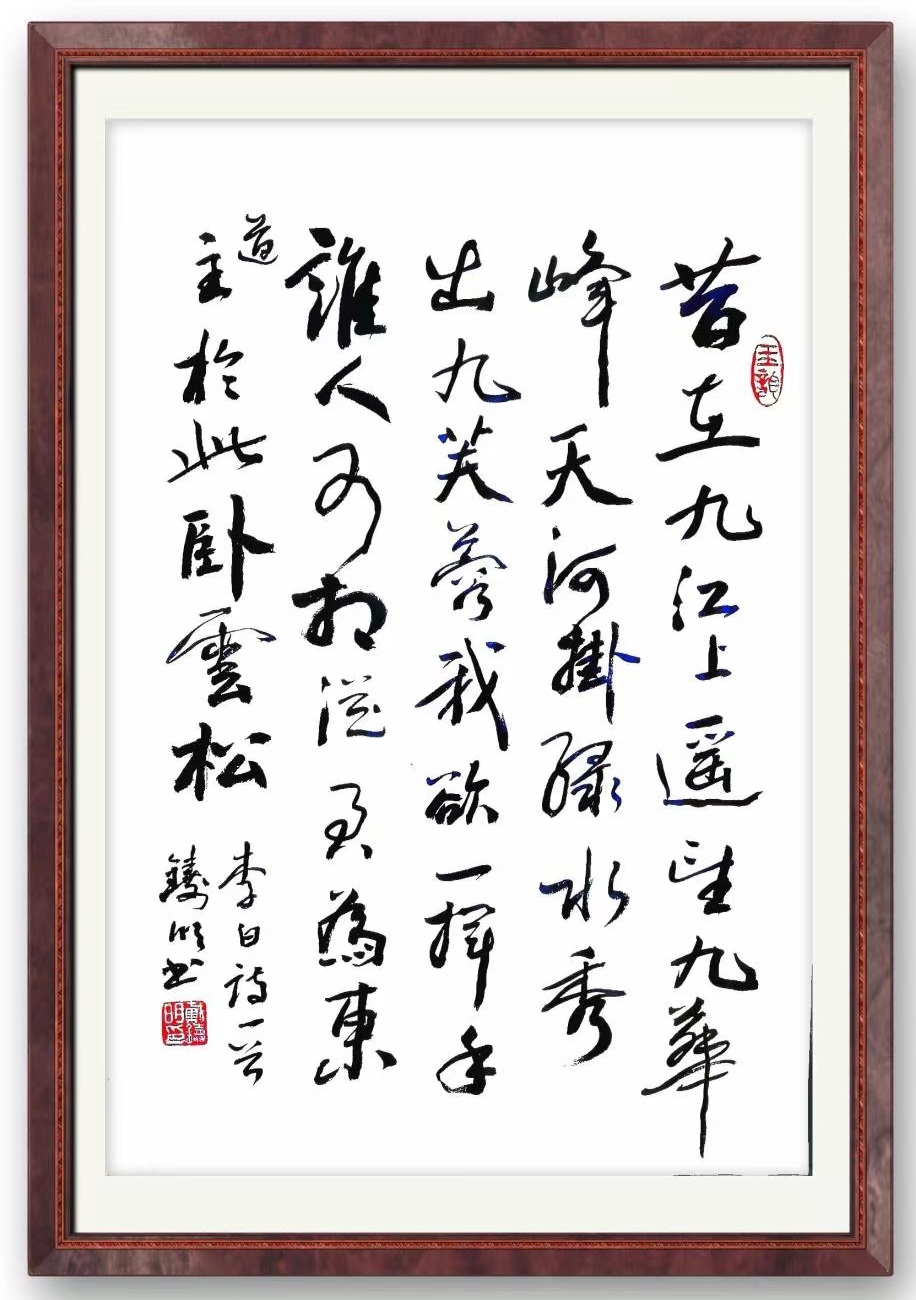 昔在九江上遥望九華
峰天河掛緑水秀
出九芙蓉我欲一揮手
誰人可相從君為東
道
主於此卧雲松
李白詩一首
戴德明印